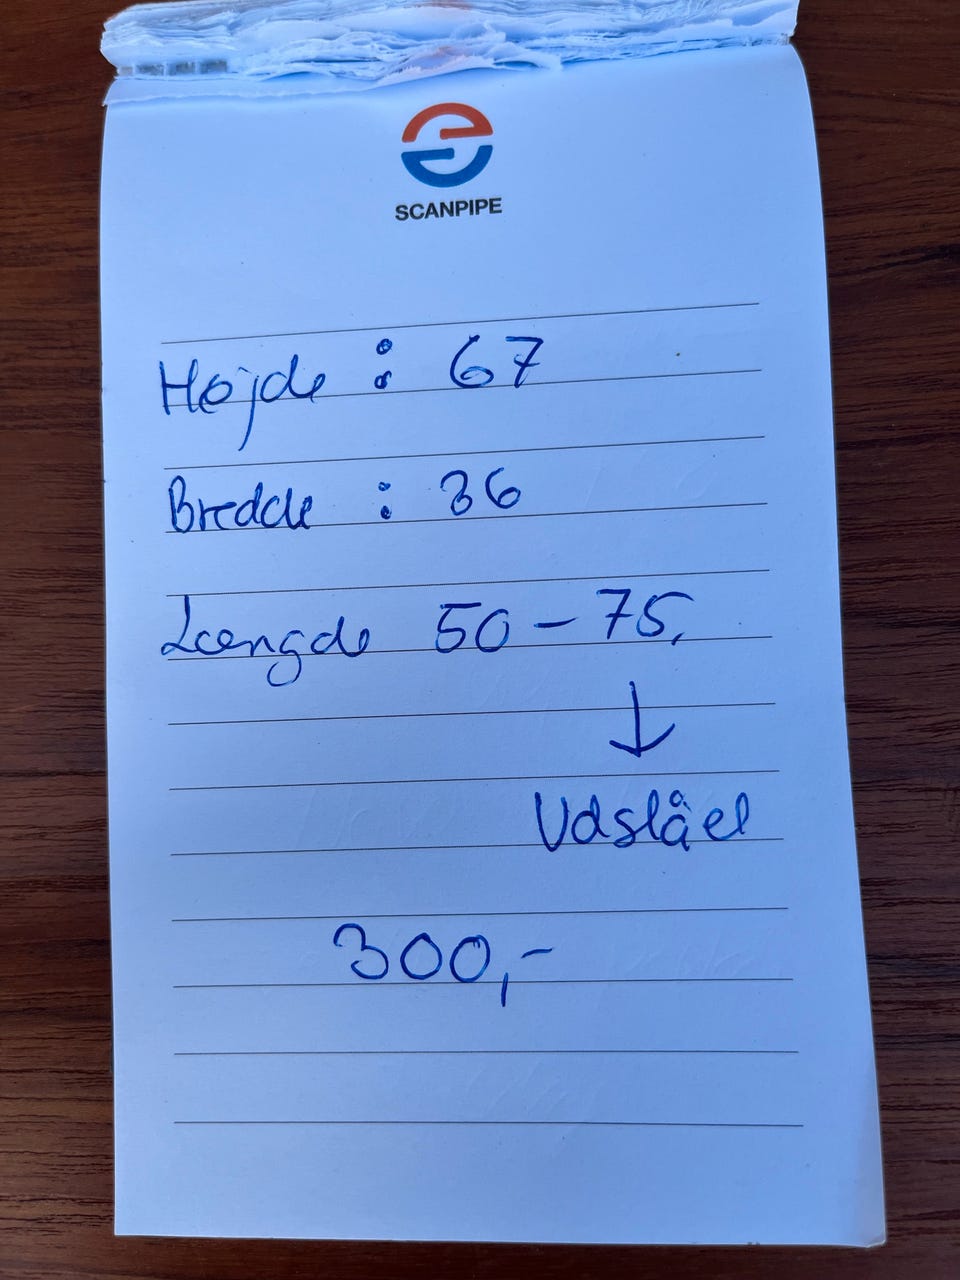 SCANPIPE
Højde : 67
Bredde : 36
Længde 50 – 75,
↓
Udslået
300,-